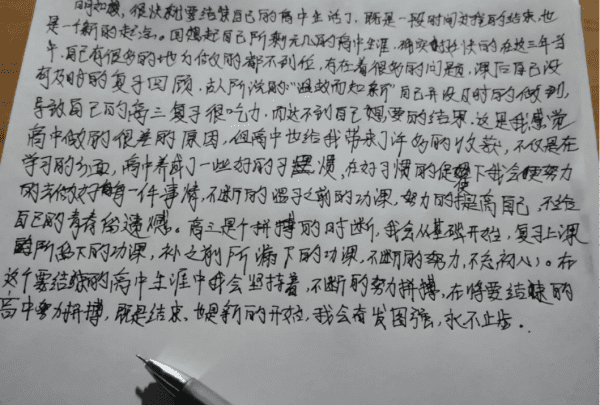 很快就要结束自己的高中生活了,既是一段时间的结束,也
是一个新的起点。回想起自己所剩无几的高中生涯,确实时光快的在这三年当
中,自己有很多的地方做的都不到位,存在着很多的问题,课后自己没
有及时的复习回顾,古人所说的“温故而知新”自己并没及时的做到,
导致自己的高三复习很吃力,而达不到自己想要的结果。这是我感觉
高中做的很差的原因,但高中也给我带来了许多的收获,不仅是在
学习的方面,高中养成了一些好的习惯,在好习惯的促使下我会更努力
的去做好每一件事情,不断的温习之前的功课,努力的提高自己,不给
自己的青春留遗憾。高三是个拼搏的时断,我会从基础开始,复习上课
所落下的功课,补之前所漏下的功课,不断的努力,不忘初心。在
这个要结束的高中生涯中我会坚持着,不断的努力拼搏,在将要结束的
高中努力拼搏,既是结束,也是新的开始,我会奋发图强,永不止步。